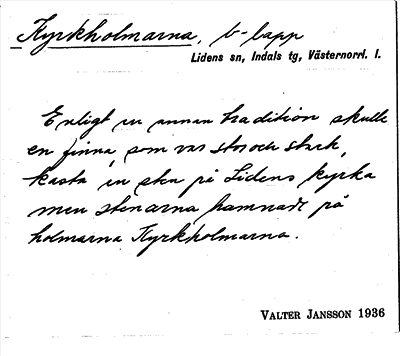 Kyrkholmarna, b-lapp
Lidens sn, Indals tg, Västernorrl. l.
Enligt en annan tradition skulle
en finne, som var stor och stark,
kasta en sten på Lidens kyrka
men stenarna hamnade på
holmarna Kyrkholmarna.
VALTER JANSSON 1936